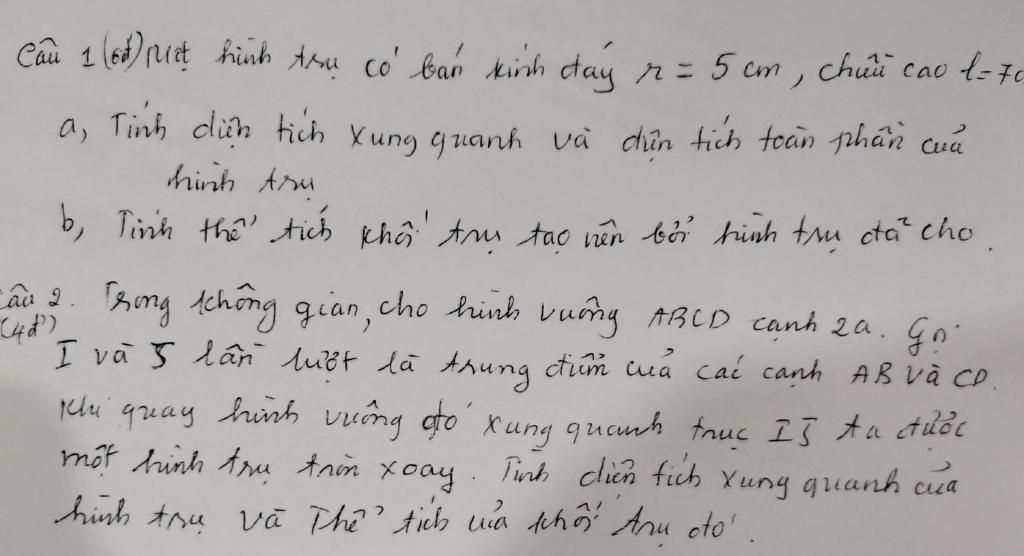 Câu 1 (6đ) Một hình trụ có bán kính đáy r = 5 cm, chiều cao l = 7c
a, Tính diện tích xung quanh và diện tích toàn phần của
hình trụ
b, Tính thể tích khối trụ tạo nên bởi hình trụ đã cho.
Câu 2. Trong không gian, cho hình vuông ABCD cạnh 2a. Gọi
(4đ) I và J lần lượt là trung điểm của các cạnh AB và CD.
Khi quay hình vuông đó xung quanh trục IJ ta được
một hình trụ tròn xoay. Tính diện tích xung quanh của
hình trụ và Thể tích của khối trụ đó.